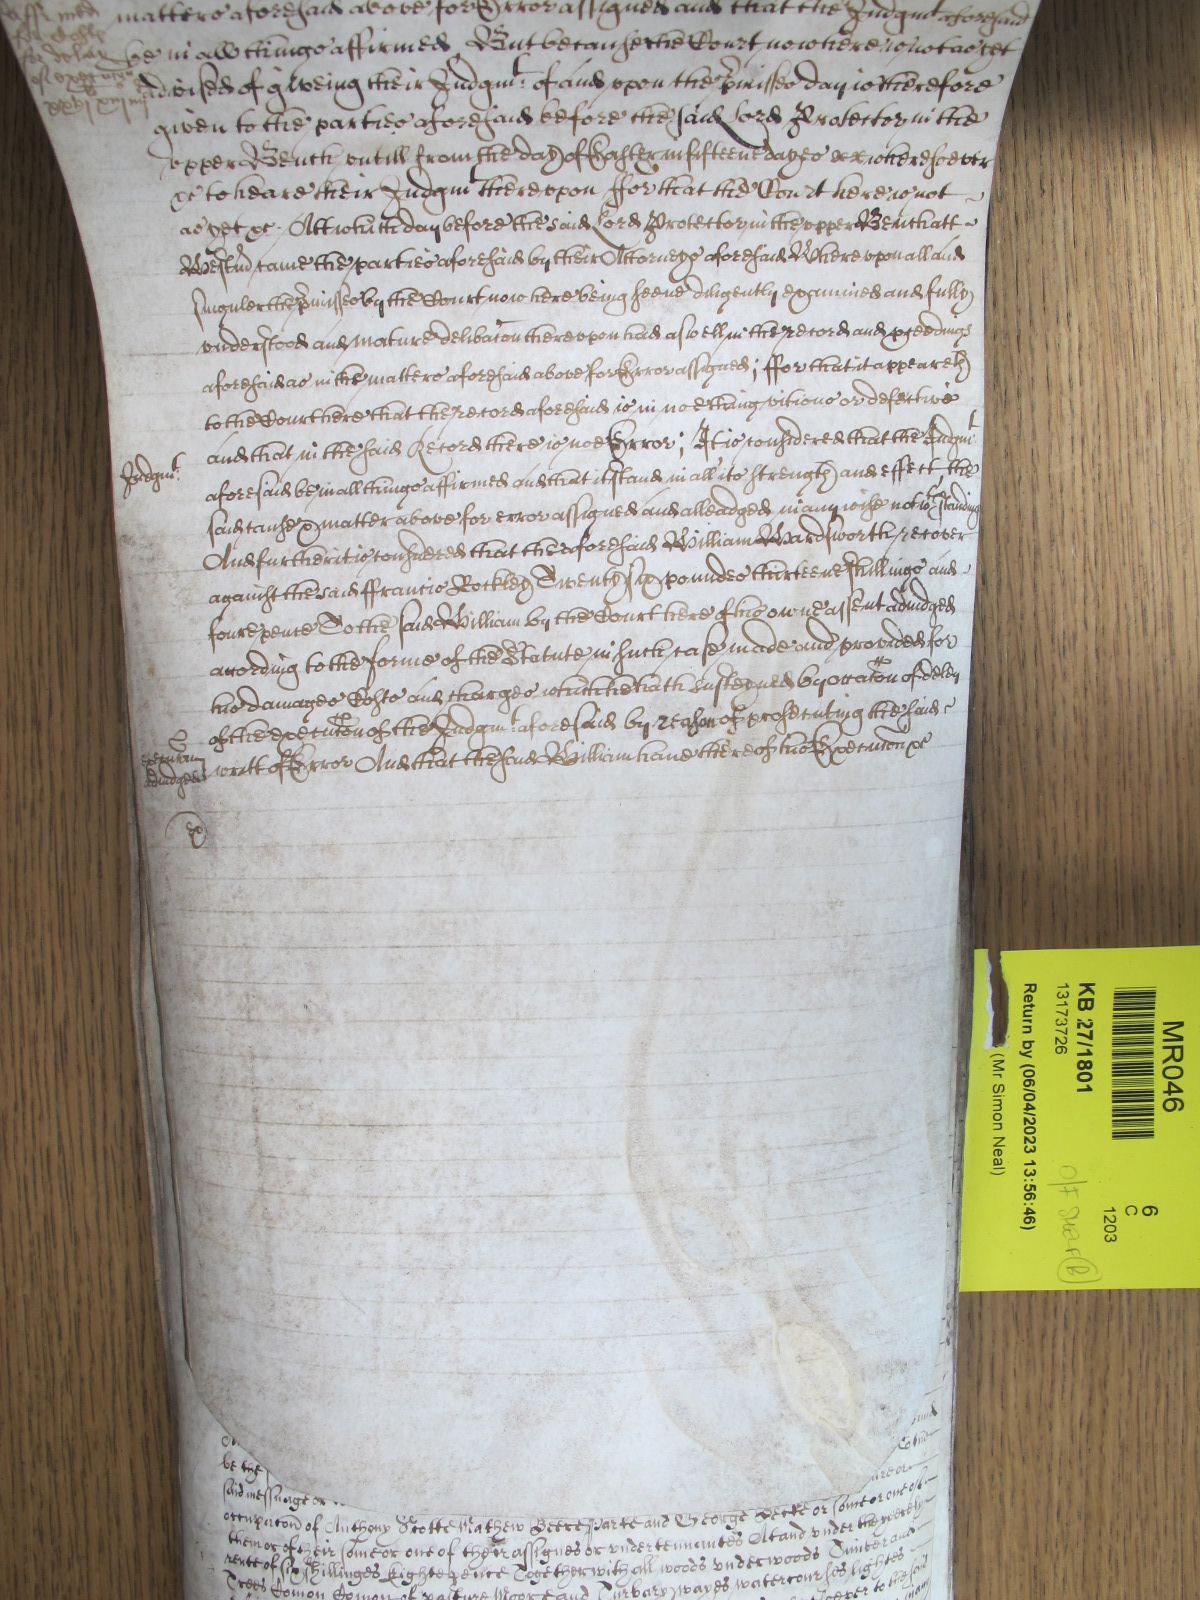 matters aforesaid above for Error assigned and that the Judgmt aforesaid
be in all things affirmed. But because the Court now here is not as yet
advised of giveing their Judgmt of and upon the p'misses day is therefore
given to the parties aforesaid before the said Lord Protector in the
upper Bench untill from the day of Easter in fifteene dayes wheresoever
&c to heare their Judgmt thereupon ffor that the Court here is not
as yet &c. Att which day before the said Lord Protector in the upper Bench att
Westmr came the parties aforesaid by their Attorneys aforesaid Whereupon all and
singuler the p'misses by the Court now here being seene diligently examined and fully
understood and mature delibacon thereupon had aswell in the record and p'ceedings
aforesaid as in the matters aforesaid above for Error assigned; ffor that it appeareth
to the Court here that the record aforesaid is in noe thing vitious or defective
and that in the said Record there is noe Error; It is considered that the Judgmt
Judgmt.
aforesaid be in all things affirmed and that it stand in all its strength and effect, the
said cause & matter above for error assigned and alleadged in any wise notwthstanding
And further it is considered that the aforesaid William Wardsworth recover
against the said ffrancis Rockley Twenty six poundes thirteene shillings and
foure pence To the said William by the Court here of his owne assent adiudged
according to the forme of the Statute in such case made and provided for
his damages Costs and charges which he hath susteyned by occacon of delay
of the execution of the Judgmt aforesaid by reason of prosecuting the said
writt of Error And that the said William have thereof his Execution &c
execucon
adiudged
be the
said messuage or
occupacon of Anthony Scotte Mathew Beere and George or some or one of
them or of their some or one of their assignes or undertennants Att and under the yearely
rente of six shillinges Eighte pence Together with all woods underwoods Timber and
Trees Comon Comon of pasture Moore and Turbary wayes watercourses lightes
MR046
KB 27/1801
13173726
Return by (06/04/2023 13:56:46)
(Mr Simon Neal)
6
C
1203